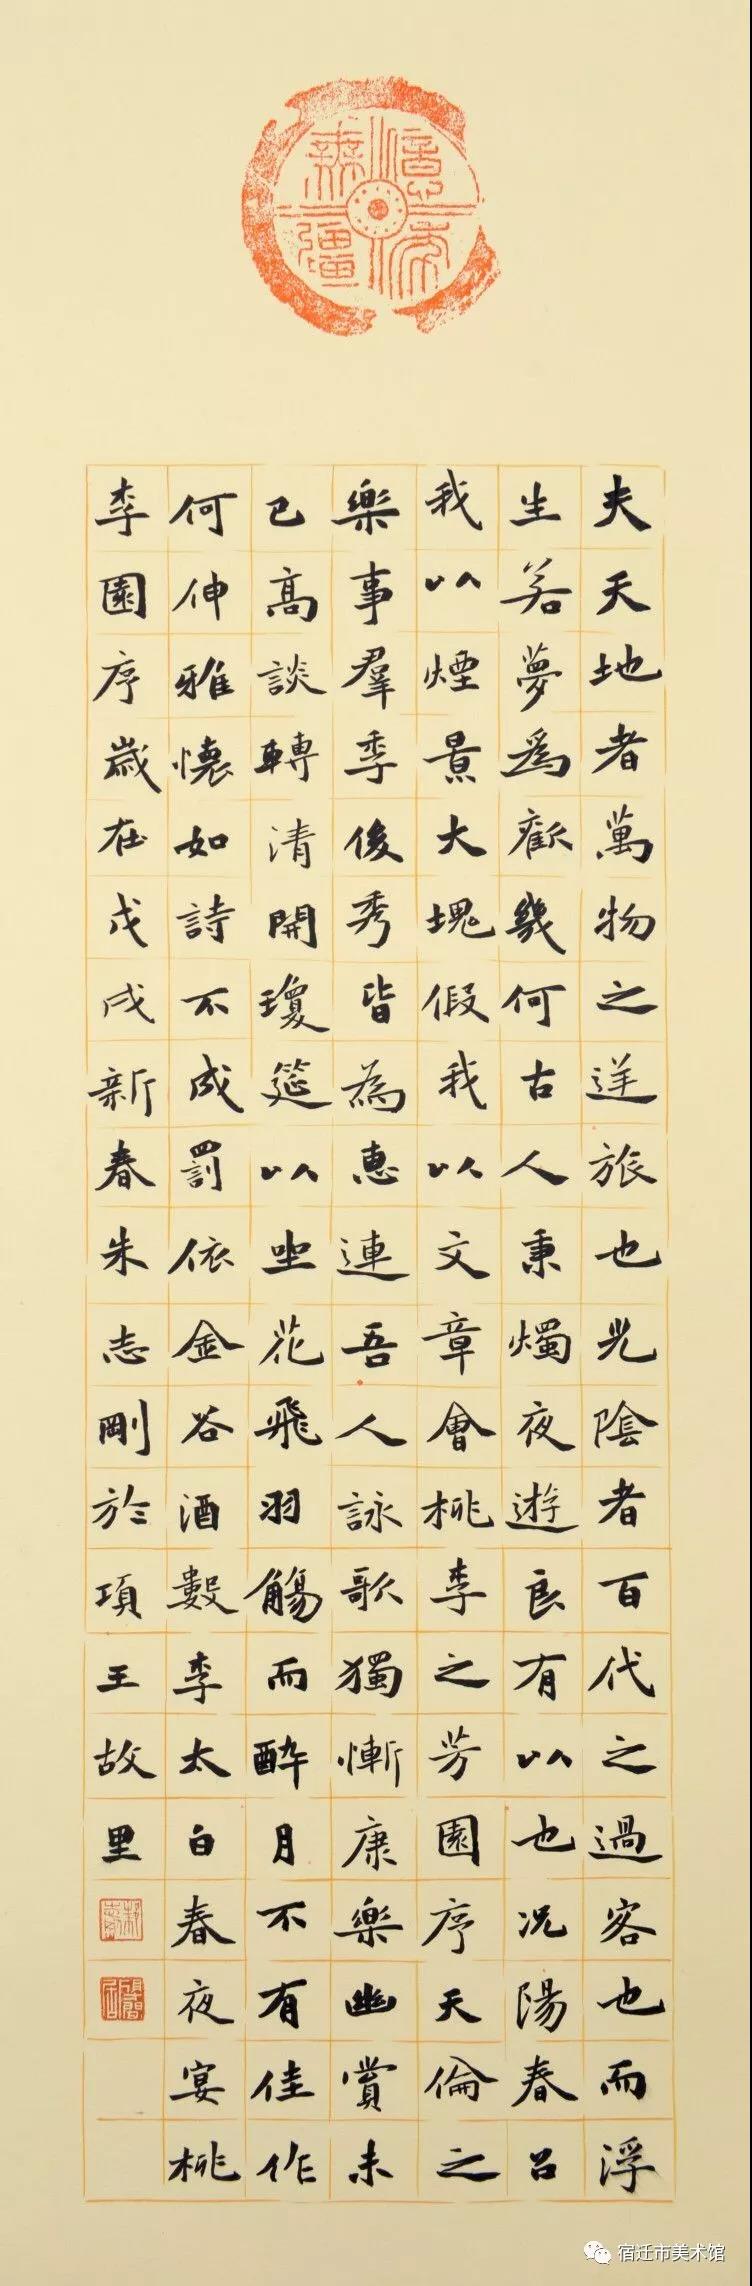 億年無疆
夫天地者萬物之逆旅也光陰者百代之過客也而浮
生若夢爲歡幾何古人秉燭夜遊良有以也況陽春召
我以煙景大塊假我以文章會桃李之芳園序天倫之
樂事羣季俊秀皆為惠連吾人詠歌獨慚康樂幽賞未
已高談轉清開瓊筵以坐花飛羽觴而醉月不有佳作
何伸雅懷如詩不成罰依金谷酒數李太白春夜宴桃
李園序歲在戊戌新春朱志剛於項王故里
宿迁市美术馆